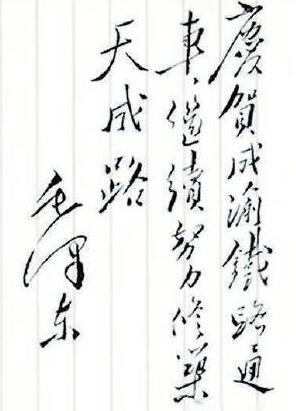 慶賀成渝鐵路通
車，繼續努力修築
天成路
毛澤东